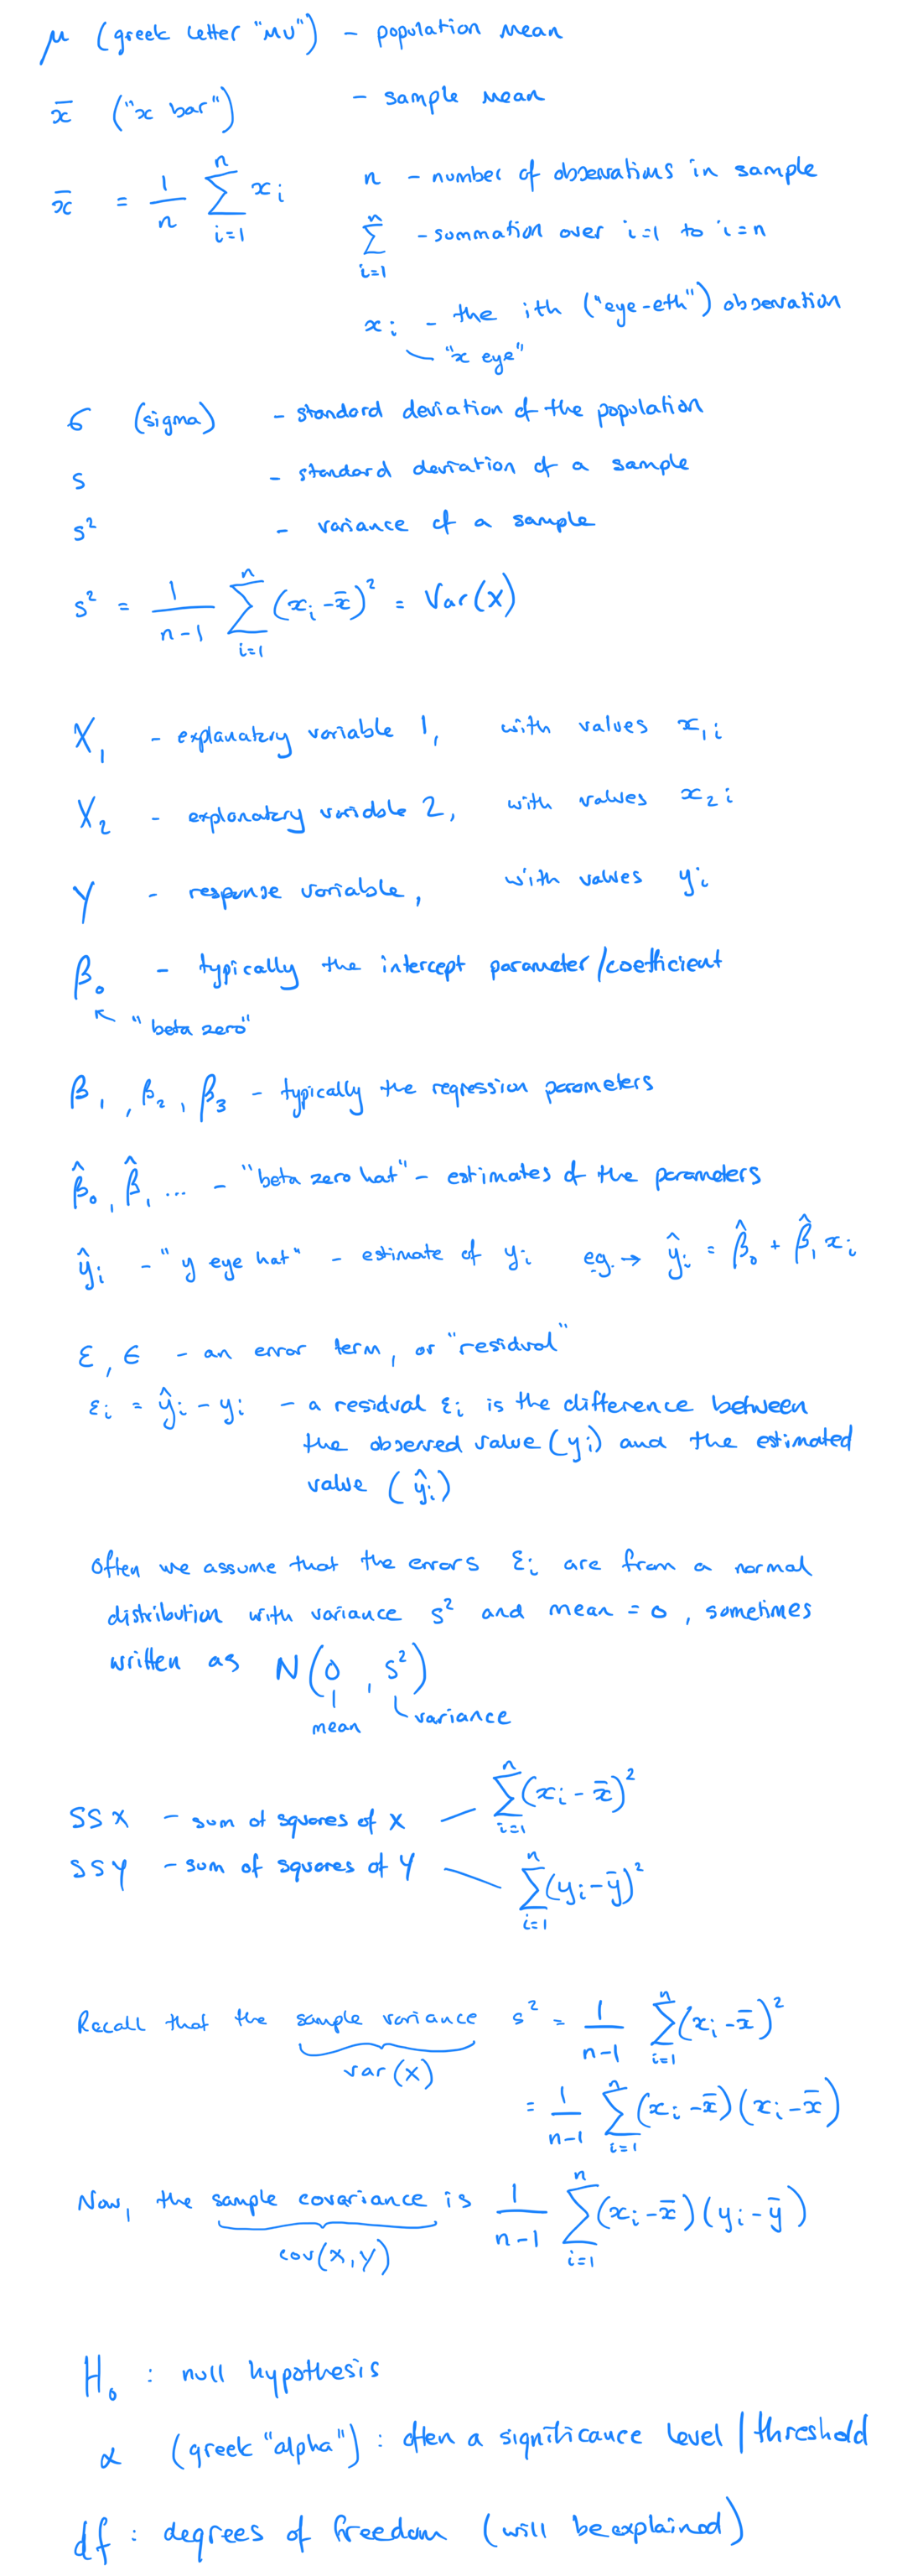 μ (greek letter "mu") - population mean
x̄ ("x bar") - sample mean
x̄ = 1/n ∑_{i=1}^{n} x_i n - number of observations in sample
∑_{i=1}^{n} - summation over i=1 to i=n
x_i - the ith ("eye-eth") observation
"x eye"
σ (sigma) - standard deviation of the population
s - standard deviation of a sample
s² - variance of a sample
s² = 1/(n-1) ∑_{i=1}^{n} (x_i - x̄)² = Var(X)
X₁ - explanatory variable 1, with values x_{1i}
X₂ - explanatory variable 2, with values x_{2i}
Y - response variable, with values y_i
β₀ - typically the intercept parameter/coefficient
"beta zero"
β₁, β₂, β₃ - typically the regression parameters
β̂₀, β̂₁ ... - "beta zero hat" - estimates of the parameters
ŷ_i - "y eye hat" - estimate of y_i eg. → ŷ_i = β̂₀ + β̂₁ x_i
ε, ϵ - an error term, or "residual"
ε_i = ŷ_i - y_i - a residual ε_i is the difference between
the observed value (y_i) and the estimated
value (ŷ_i)
Often we assume that the errors ε_i are from a normal
distribution with variance s² and mean = 0, sometimes
written as N(0, s²)
mean variance
SSX - sum of squares of X — ∑_{i=1}^{n} (x_i - x̄)²
SSY - sum of squares of Y — ∑_{i=1}^{n} (y_i - ȳ)²
Recall that the sample variance s² = 1/(n-1) ∑_{i=1}^{n} (x_i - x̄)²
var(X)
= 1/(n-1) ∑_{i=1}^{n} (x_i - x̄)(x_i - x̄)
Now, the sample covariance is 1/(n-1) ∑_{i=1}^{n} (x_i - x̄)(y_i - ȳ)
cov(X,Y)
H₀ : null hypothesis
α (greek "alpha") : often a significance level / threshold
df : degrees of freedom (will be explained)